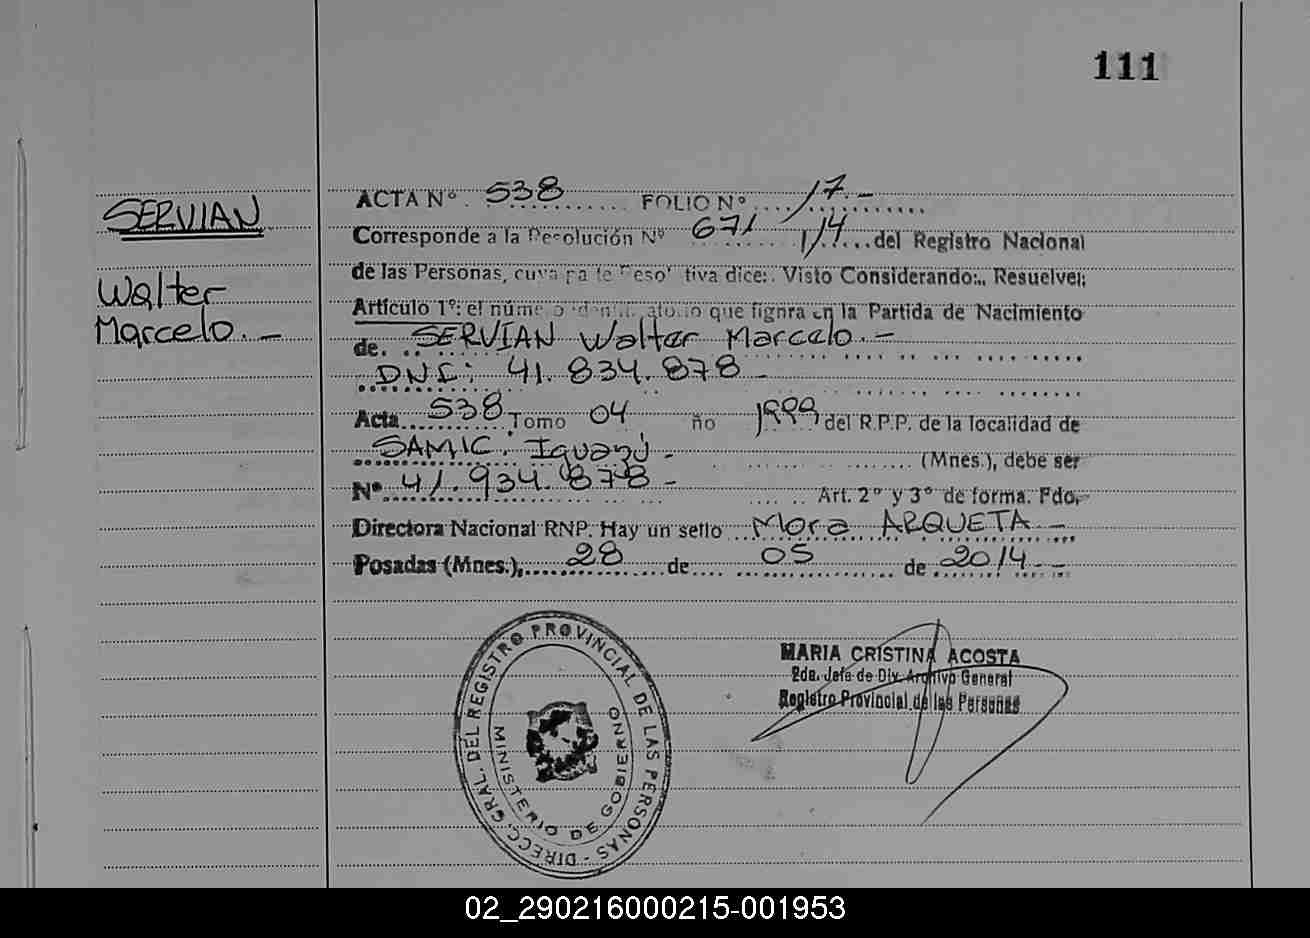 111
SERVIAN
Walter
Marcelo.-
ACTA Nº. 538 FOLIO Nº 17.-
Corresponde a la Resolución Nº 671 1/4 del Registro Nacional
de las Personas, cuya parte Resolutiva dice: Visto Considerando:, Resuelve:
Artículo 1º: el número identificatorio que figura en la Partida de Nacimiento
de. SERVIAN Walter Marcelo.-
DNI: 41.834.878-
Acta 538 Tomo 04 ño 1999 del R.P.P. de la localidad de
SAMIC. Iguazú- (Mnes.), debe ser
Nº 41.934.878- Art. 2º y 3º de forma. Fdo,
Directora Nacional RNP. Hay un sello Mora ARQUETA.-
Posadas (Mnes.), 28 de 05 de 2014.-
DIRECC. GRAL. DEL REGISTRO PROVINCIAL DE LAS PERSONAS -
MINISTERIO DE GOBIERNO
MARIA CRISTINA ACOSTA
2da. Jefa de Div. Archivo General
Registro Provincial de las Personas
02_290216000215-001953